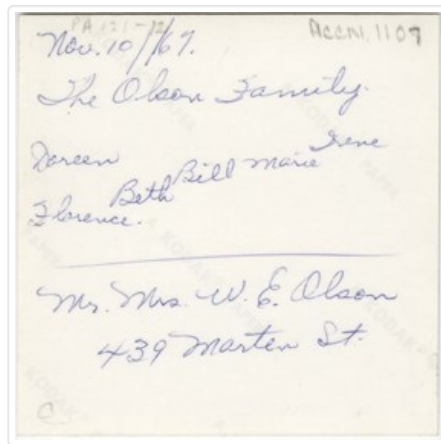 PA 121-12
Accn. 1107
Nov. 10/67.
The Olson Family.
Irene
Doreen Beth Bill Marie
Florence.
Mr. Mrs. W. E. Olson
439 Marten St.
C